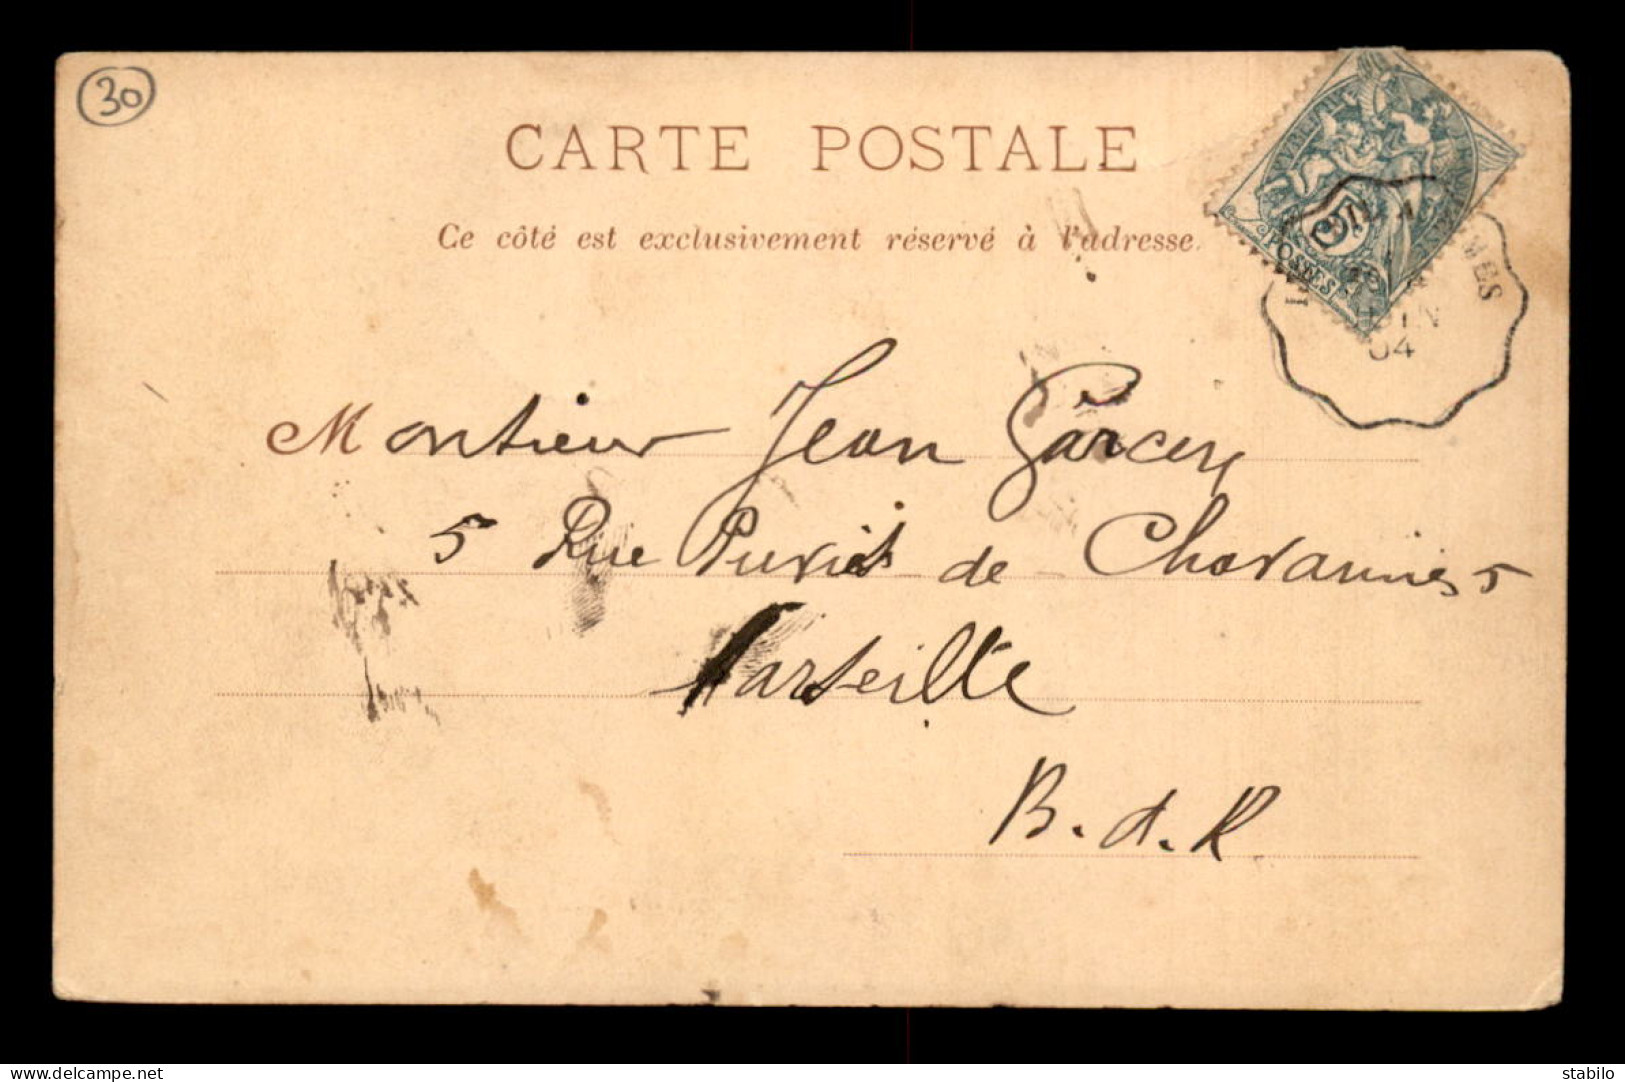 30
CARTE POSTALE
Ce côté est exclusivement réservé à l'adresse.
5
POSTES
MES
JUIN
04
Monsieur Jean Garcin
5 Rue Puvis de Chavannes 5
Marseille
B. d. R
www.delcampe.net
stabilo